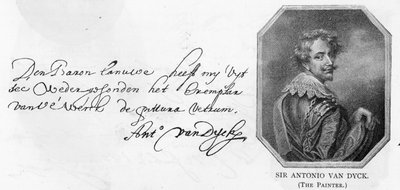 Den Baron Canuwe heeft my Uyt
see Weder gesonden het Exemplar
van Ue Werck de pittura veterum.
Anto. van Dyck
SIR ANTONIO VAN DYCK.
(THE PAINTER.)